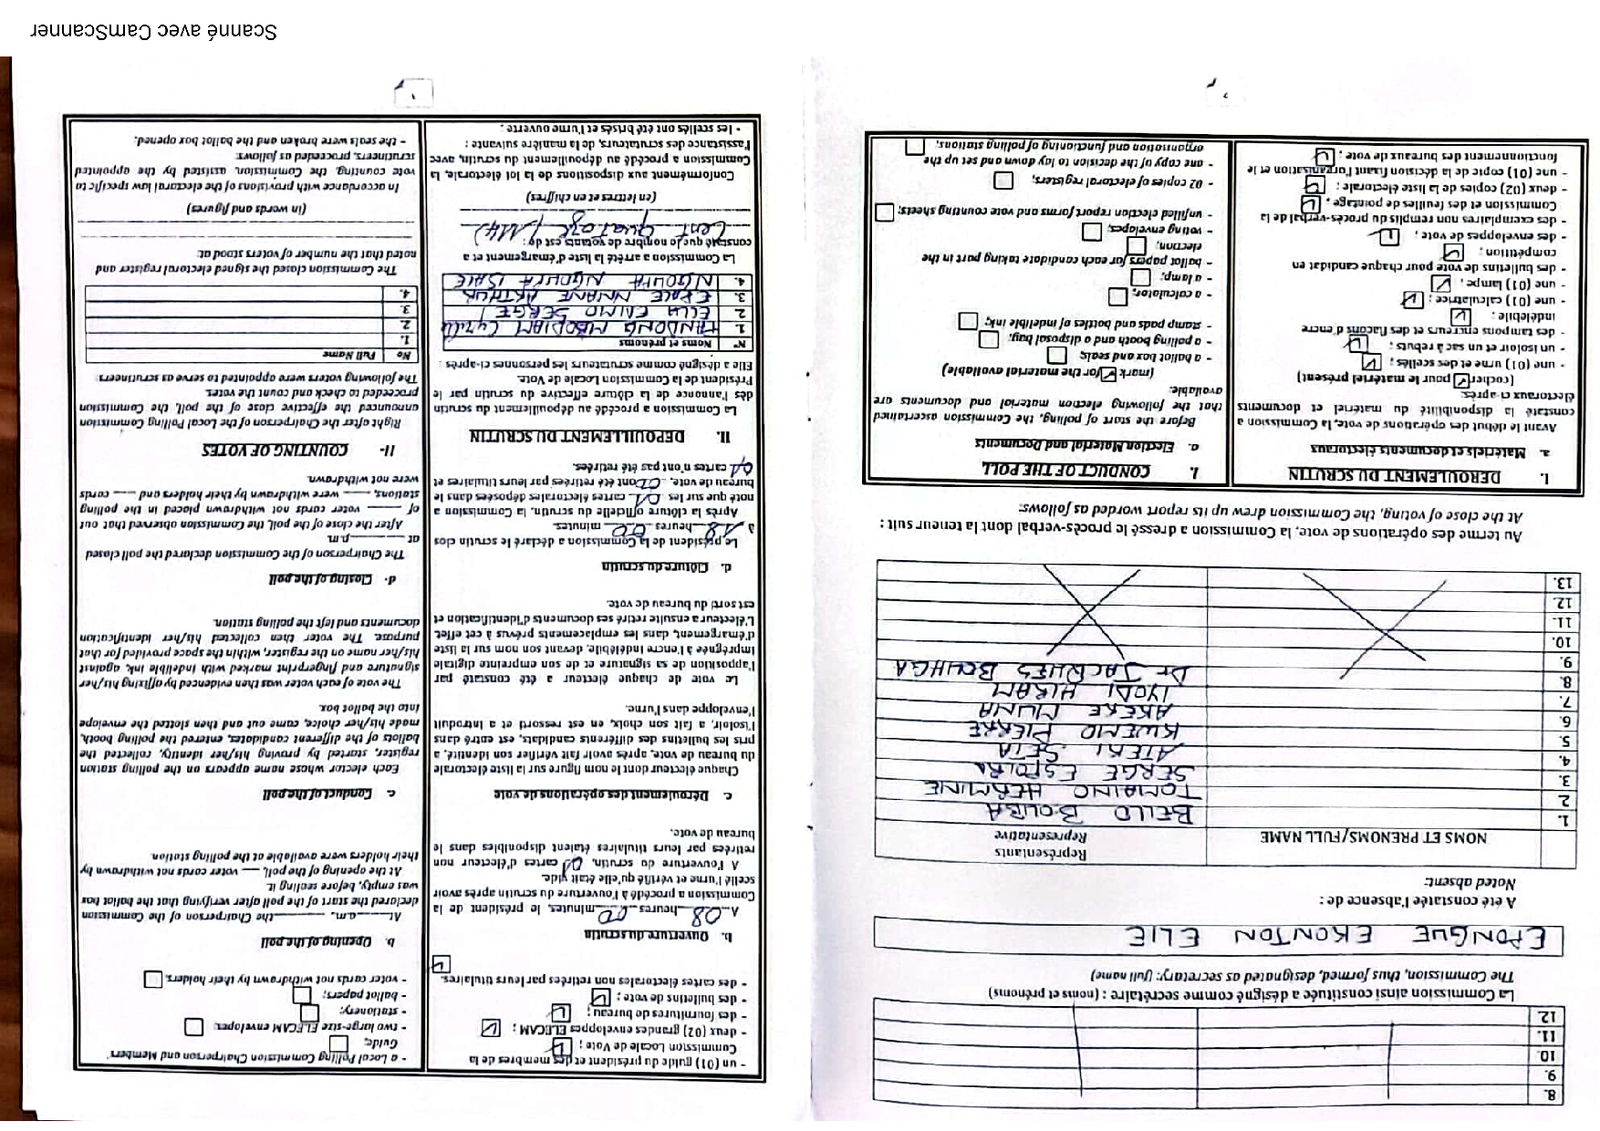 8.
9.
10.
11.
12.
La Commission ainsi constituée a désigné comme secrétaire : (noms et prénoms)
The Commission, thus formed, designated as secretary: (full name)
EPONGUE EKONTON ELIE
A été constatée l'absence de :
Noted absent:
NOMS ET PRENOMS/FULL NAME
Représentants
Representative
1. BELLO BOUBA
2. TOMAINO HERMINE
3. SERGE ESPOIR
4. ATEKI SETA
5. KWEMO PIERRE
6. AKERE MUNA
7. IYODI HIRAM
8. Dr JACQUES BOUHGA
9.
10.
11.
12.
13.
Au terme des opérations de vote, la Commission a dressé le procès-verbal dont la teneur suit :
At the close of voting, the Commission drew up its report worded as follows:
I. DEROULEMENT DU SCRUTIN
a. Matériels et documents électoraux
Avant le début des opérations de vote, la Commission a
constaté la disponibilité du matériel et documents
électoraux ci-après:
(cocher pour le matériel présent)
- une (01) urne et des scellés;
- un isoloir et un sac à rebuts ;
- des tampons encreurs et des flacons d'encre
indélébile ;
- une (01) calculatrice ;
- une (01) lampe ;
- des bulletins de vote pour chaque candidat en
compétition ;
- des enveloppes de vote ;
- des exemplaires non remplis du procès-verbal de la
Commission et des feuilles de pointage ;
- deux (02) copies de la liste électorale ;
- une (01) copie de la décision fixant l'organisation et le
fonctionnement des bureaux de vote ;
I. CONDUCT OF THE POLL
a. Election Material and Documents
Before the start of polling, the Commission ascertained
that the following election material and documents are
available:
(mark for the material available)
- a ballot box and seals;
- a polling booth and a disposal bag;
- stamp pads and bottles of indelible ink;
- a calculator;
- a lamp;
- ballot papers for each candidate taking part in the
election;
- voting envelopes;
- unfilled election report forms and vote counting sheets;
- 02 copies of electoral registers;
- one copy of the decision to lay down and set up the
organisation and functioning of polling stations;
- un (01) guide du président et des membres de la
Commission Locale de Vote ;
- deux (02) grandes enveloppes ELECAM ;
- des fournitures de bureau ;
- des bulletins de vote ;
- des cartes électorales non retirées par leurs titulaires.
b. Ouverture du scrutin
A 08 heures 00 minutes, le président de la
Commission a procédé à l'ouverture du scrutin après avoir
scellé l'urne et vérifié qu'elle était vide.
A l'ouverture du scrutin, 01 cartes d'électeur non
retirées par leurs titulaires étaient disponibles dans le
bureau de vote.
c. Déroulement des opérations de vote
Chaque électeur dont le nom figure sur la liste électorale
du bureau de vote, après avoir fait vérifier son identité, a
pris les bulletins des différents candidats, est entré dans
l'isoloir, a fait son choix, en est ressorti et a introduit
l'enveloppe dans l'urne.
Le vote de chaque électeur a été constaté par
l'apposition de sa signature et de son empreinte digitale
imprégnée à l'encre indélébile, devant son nom sur la liste
d'émargement, dans les emplacements prévus à cet effet.
L'électeur a ensuite retiré ses documents d'identification et
est sorti du bureau de vote.
d. Clôture du scrutin
Le président de la Commission a déclaré le scrutin clos
à 18 heures 00 minutes.
Après la clôture officielle du scrutin, la Commission a
noté que sur les 01 cartes électorales déposées dans le
bureau de vote, 00 ont été retirées par leurs titulaires et
01 cartes n'ont pas été retirées.
II. DEPOUILLEMENT DU SCRUTIN
La Commission a procédé au dépouillement du scrutin
dès l'annonce de la clôture effective du scrutin par le
Président de la Commission Locale de Vote.
Elle a désigné comme scrutateurs les personnes ci-après :
N° Noms et prénoms
1. TANDONG MBODIAM Cyrille
2. ELLA ENIMO SERGE
3. EPALE NNANE ARTHUR
4. NGOUYA NGOUYA ISAIE
La Commission a arrêté la liste d'émargement et a
constaté que le nombre de votants est de :
Cent quatorze (114)
(en lettres et en chiffres)
Conformément aux dispositions de la loi électorale, la
Commission a procédé au dépouillement du scrutin, avec
l'assistance des scrutateurs, de la manière suivante :
- les scellés ont été brisés et l'urne ouverte ;
- a Local Polling Commission Chairperson and Members'
Guide;
- two large-size ELECAM envelopes;
- stationery;
- ballot papers;
- voter cards not withdrawn by their holders.
b. Opening of the poll
At a.m., the Chairperson of the Commission
declared the start of the poll after verifying that the ballot box
was empty, before sealing it.
At the opening of the poll, voter cards not withdrawn by
their holders were available at the polling station.
c. Conduct of the poll
Each elector whose name appears on the polling station
register, started by proving his/her identity, collected the
ballots of the different candidates, entered the polling booth,
made his/her choice, came out and then slotted the envelope
into the ballot box.
The vote of each voter was then evidenced by affixing his/her
signature and fingerprint marked with indelible ink, against
his/her name on the register, within the space provided for that
purpose. The voter then collected his/her identification
documents and left the polling station.
d- Closing of the poll
The Chairperson of the Commission declared the poll closed
at p.m.
After the close of the poll, the Commission observed that out
of voter cards not withdrawn placed in the polling
stations, were withdrawn by their holders and cards
were not withdrawn.
II- COUNTING OF VOTES
Right after the Chairperson of the Local Polling Commission
announced the effective close of the poll, the Commission
proceeded to check and count the votes.
The following voters were appointed to serve as scrutineers:
No Full Name
1.
2.
3.
4.
The Commission closed the signed electoral register and
noted that the number of voters stood at:
(in words and figures)
In accordance with provisions of the electoral law specific to
vote counting, the Commission, assisted by the appointed
scrutineers, proceeded as follows:
- the seals were broken and the ballot box opened.
Scanné avec CamScanner